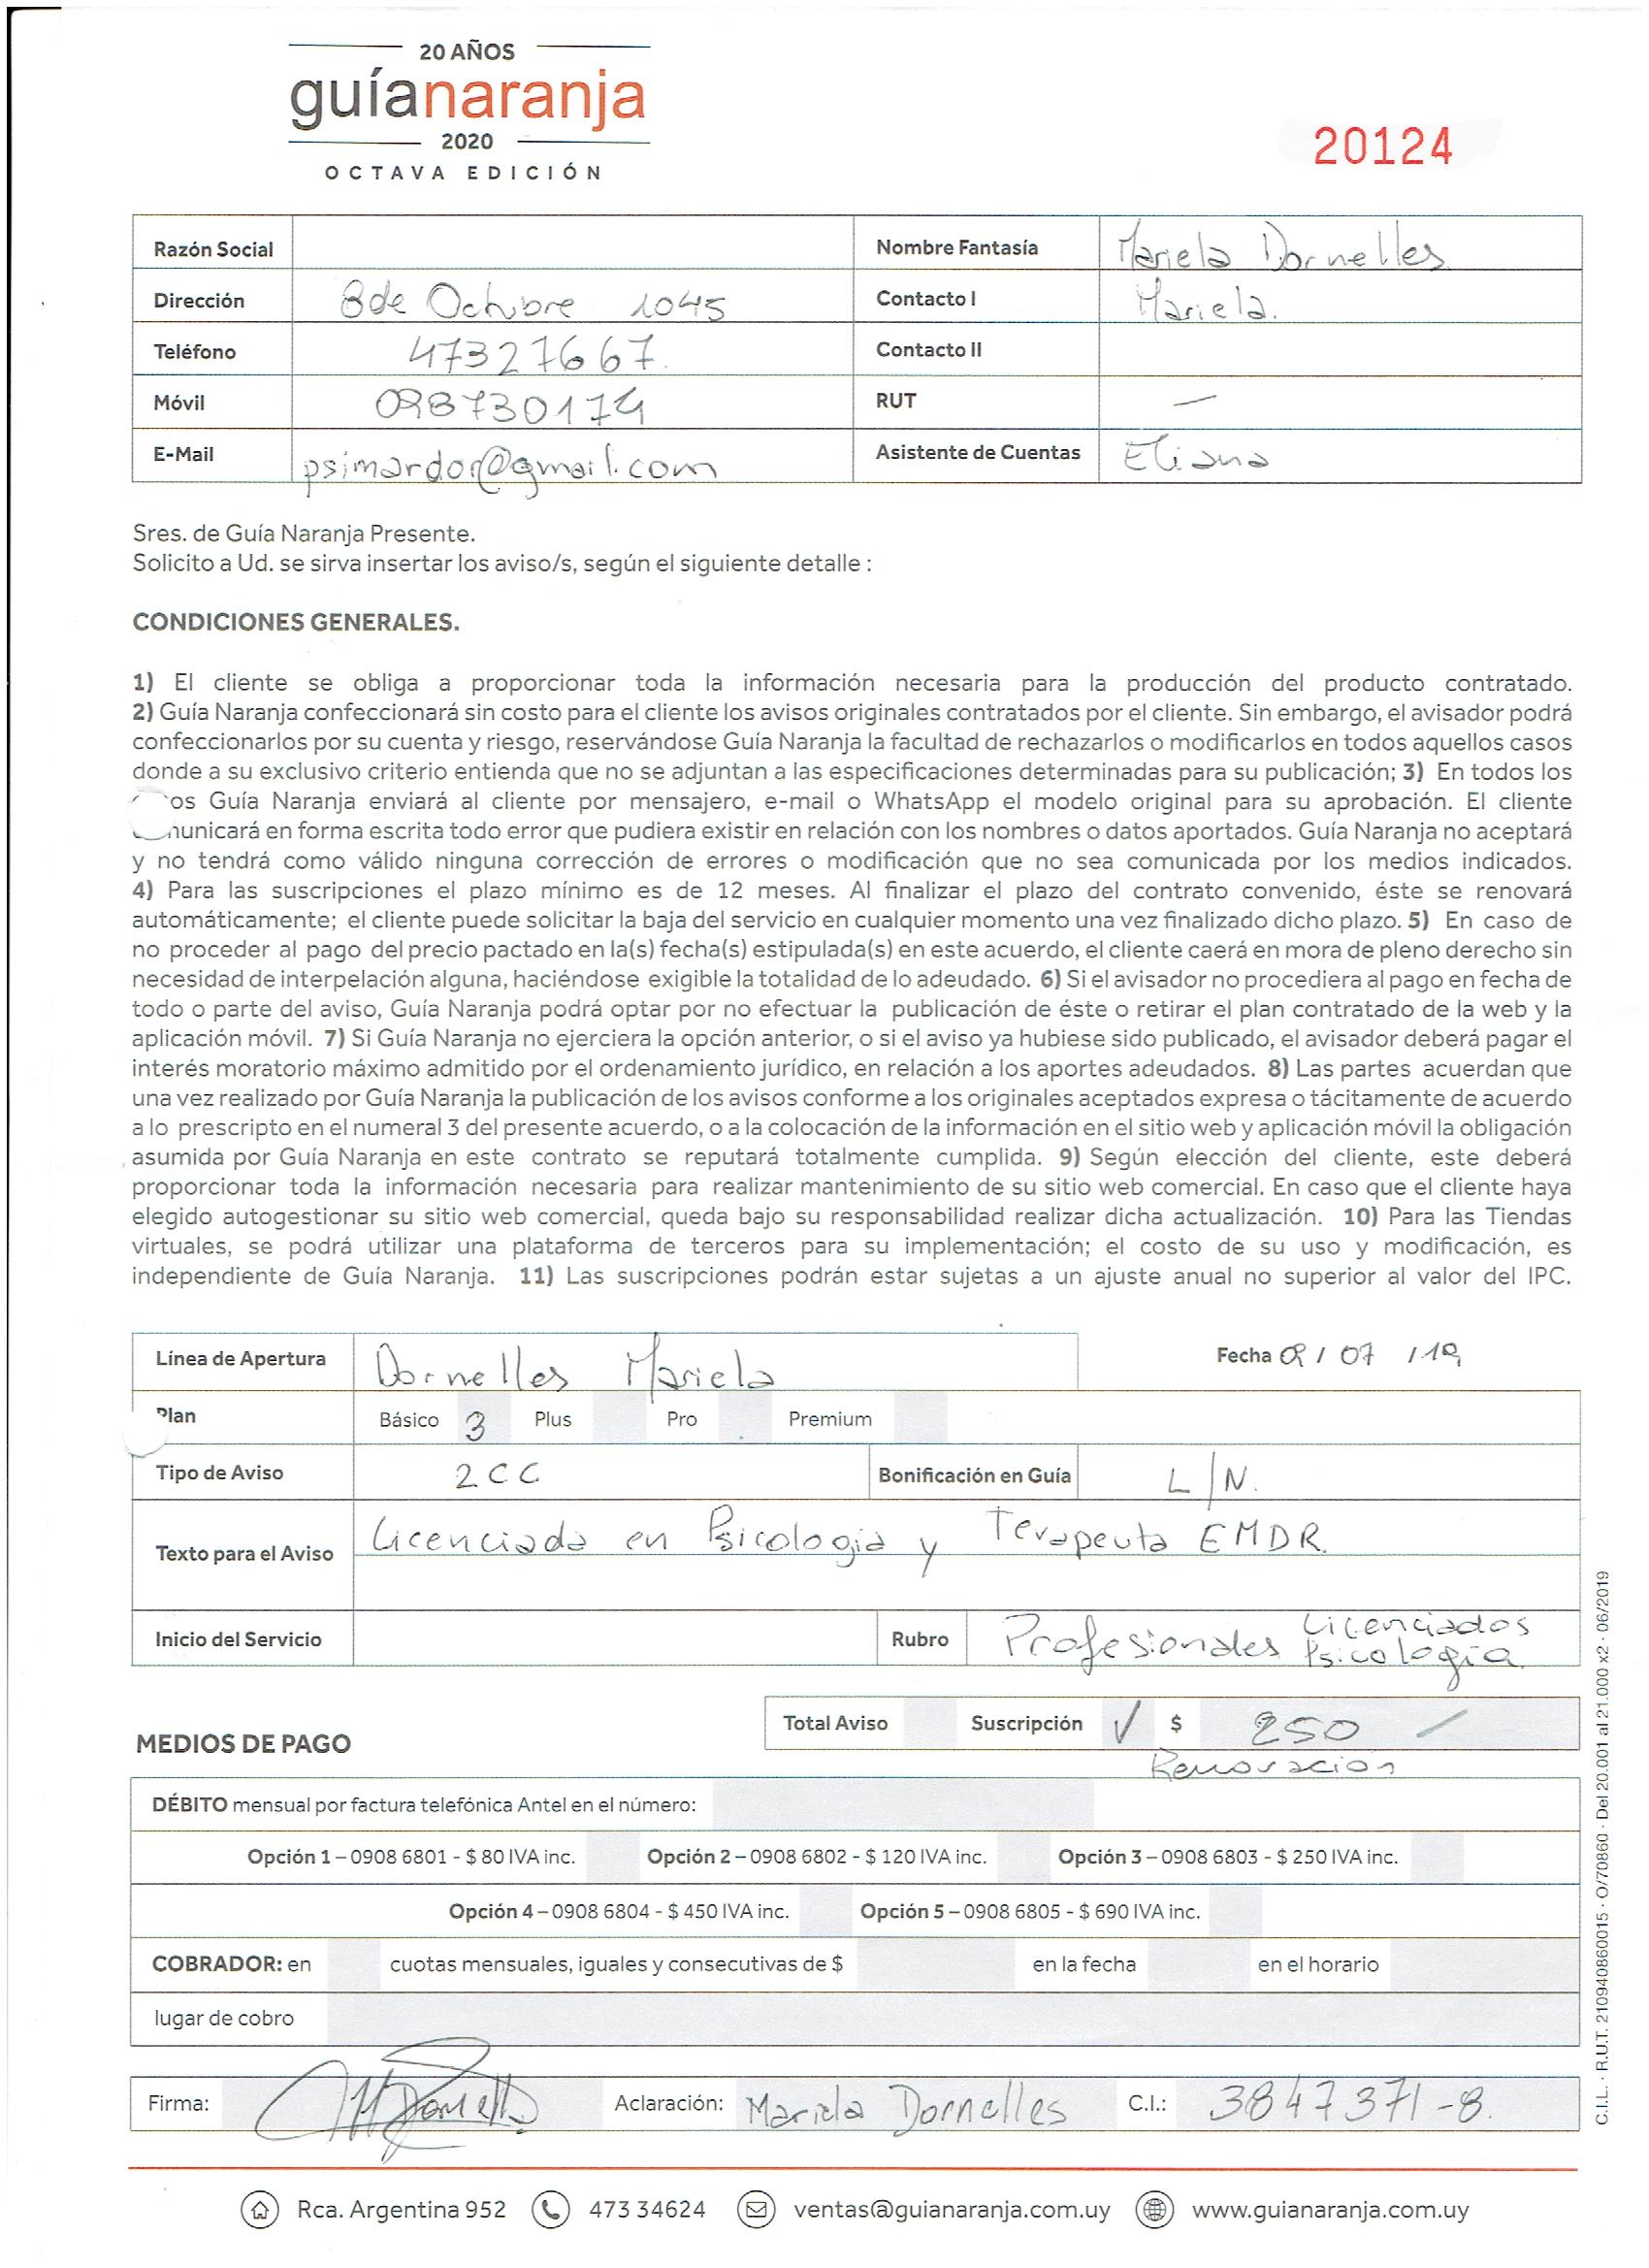 20 AÑOS
guíanaranja
2020
OCTAVA EDICIÓN
20124
Razón Social
Nombre Fantasía Mariela Dornelles
Dirección 8 de Octubre 1045
Contacto I Mariela.
Teléfono 47327667.
Contacto II
Móvil 098730174
RUT —
E-Mail psimardor@gmail.com
Asistente de Cuentas Eliana
Sres. de Guía Naranja Presente.
Solicito a Ud. se sirva insertar los aviso/s, según el siguiente detalle :
CONDICIONES GENERALES.
1) El cliente se obliga a proporcionar toda la información necesaria para la producción del producto contratado.
2) Guía Naranja confeccionará sin costo para el cliente los avisos originales contratados por el cliente. Sin embargo, el avisador podrá
confeccionarlos por su cuenta y riesgo, reservándose Guía Naranja la facultad de rechazarlos o modificarlos en todos aquellos casos
donde a su exclusivo criterio entienda que no se adjuntan a las especificaciones determinadas para su publicación; 3) En todos los
os Guía Naranja enviará al cliente por mensajero, e-mail o WhatsApp el modelo original para su aprobación. El cliente
unicará en forma escrita todo error que pudiera existir en relación con los nombres o datos aportados. Guía Naranja no aceptará
y no tendrá como válido ninguna corrección de errores o modificación que no sea comunicada por los medios indicados.
4) Para las suscripciones el plazo mínimo es de 12 meses. Al finalizar el plazo del contrato convenido, éste se renovará
automáticamente; el cliente puede solicitar la baja del servicio en cualquier momento una vez finalizado dicho plazo. 5) En caso de
no proceder al pago del precio pactado en la(s) fecha(s) estipulada(s) en este acuerdo, el cliente caerá en mora de pleno derecho sin
necesidad de interpelación alguna, haciéndose exigible la totalidad de lo adeudado. 6) Si el avisador no procediera al pago en fecha de
todo o parte del aviso, Guía Naranja podrá optar por no efectuar la publicación de éste o retirar el plan contratado de la web y la
aplicación móvil. 7) Si Guía Naranja no ejerciera la opción anterior, o si el aviso ya hubiese sido publicado, el avisador deberá pagar el
interés moratorio máximo admitido por el ordenamiento jurídico, en relación a los aportes adeudados. 8) Las partes acuerdan que
una vez realizado por Guía Naranja la publicación de los avisos conforme a los originales aceptados expresa o tácitamente de acuerdo
a lo prescripto en el numeral 3 del presente acuerdo, o a la colocación de la información en el sitio web y aplicación móvil la obligación
asumida por Guía Naranja en este contrato se reputará totalmente cumplida. 9) Según elección del cliente, este deberá
proporcionar toda la información necesaria para realizar mantenimiento de su sitio web comercial. En caso que el cliente haya
elegido autogestionar su sitio web comercial, queda bajo su responsabilidad realizar dicha actualización. 10) Para las Tiendas
virtuales, se podrá utilizar una plataforma de terceros para su implementación; el costo de su uso y modificación, es
independiente de Guía Naranja. 11) Las suscripciones podrán estar sujetas a un ajuste anual no superior al valor del IPC.
Línea de Apertura Dornelles Mariela
Fecha 09 / 07 / 19
Plan Básico 3 Plus Pro Premium
Tipo de Aviso 2CC Bonificación en Guía L/N.
Texto para el Aviso Licenciada en Psicologia y Terapeuta EMDR.
Inicio del Servicio Rubro Profesionales Licenciados
Psicología
Total Aviso Suscripción ✓ $ 250 /
Renovación
MEDIOS DE PAGO
DÉBITO mensual por factura telefónica Antel en el número:
Opción 1 – 0908 6801 - $ 80 IVA inc. Opción 2 – 0908 6802 - $ 120 IVA inc. Opción 3 – 0908 6803 - $ 250 IVA inc.
Opción 4 – 0908 6804 - $ 450 IVA inc. Opción 5 – 0908 6805 - $ 690 IVA inc.
COBRADOR: en cuotas mensuales, iguales y consecutivas de $ en la fecha en el horario
lugar de cobro
Firma: MDornelles Aclaración: Mariela Dornelles C.I.: 3847371-8.
Rca. Argentina 952 473 34624 ventas@guianaranja.com.uy www.guianaranja.com.uy
C.I.L. · R.U.T. 210940860015 · O/70860 · Del 20.001 al 21.000 x2 · 06/2019